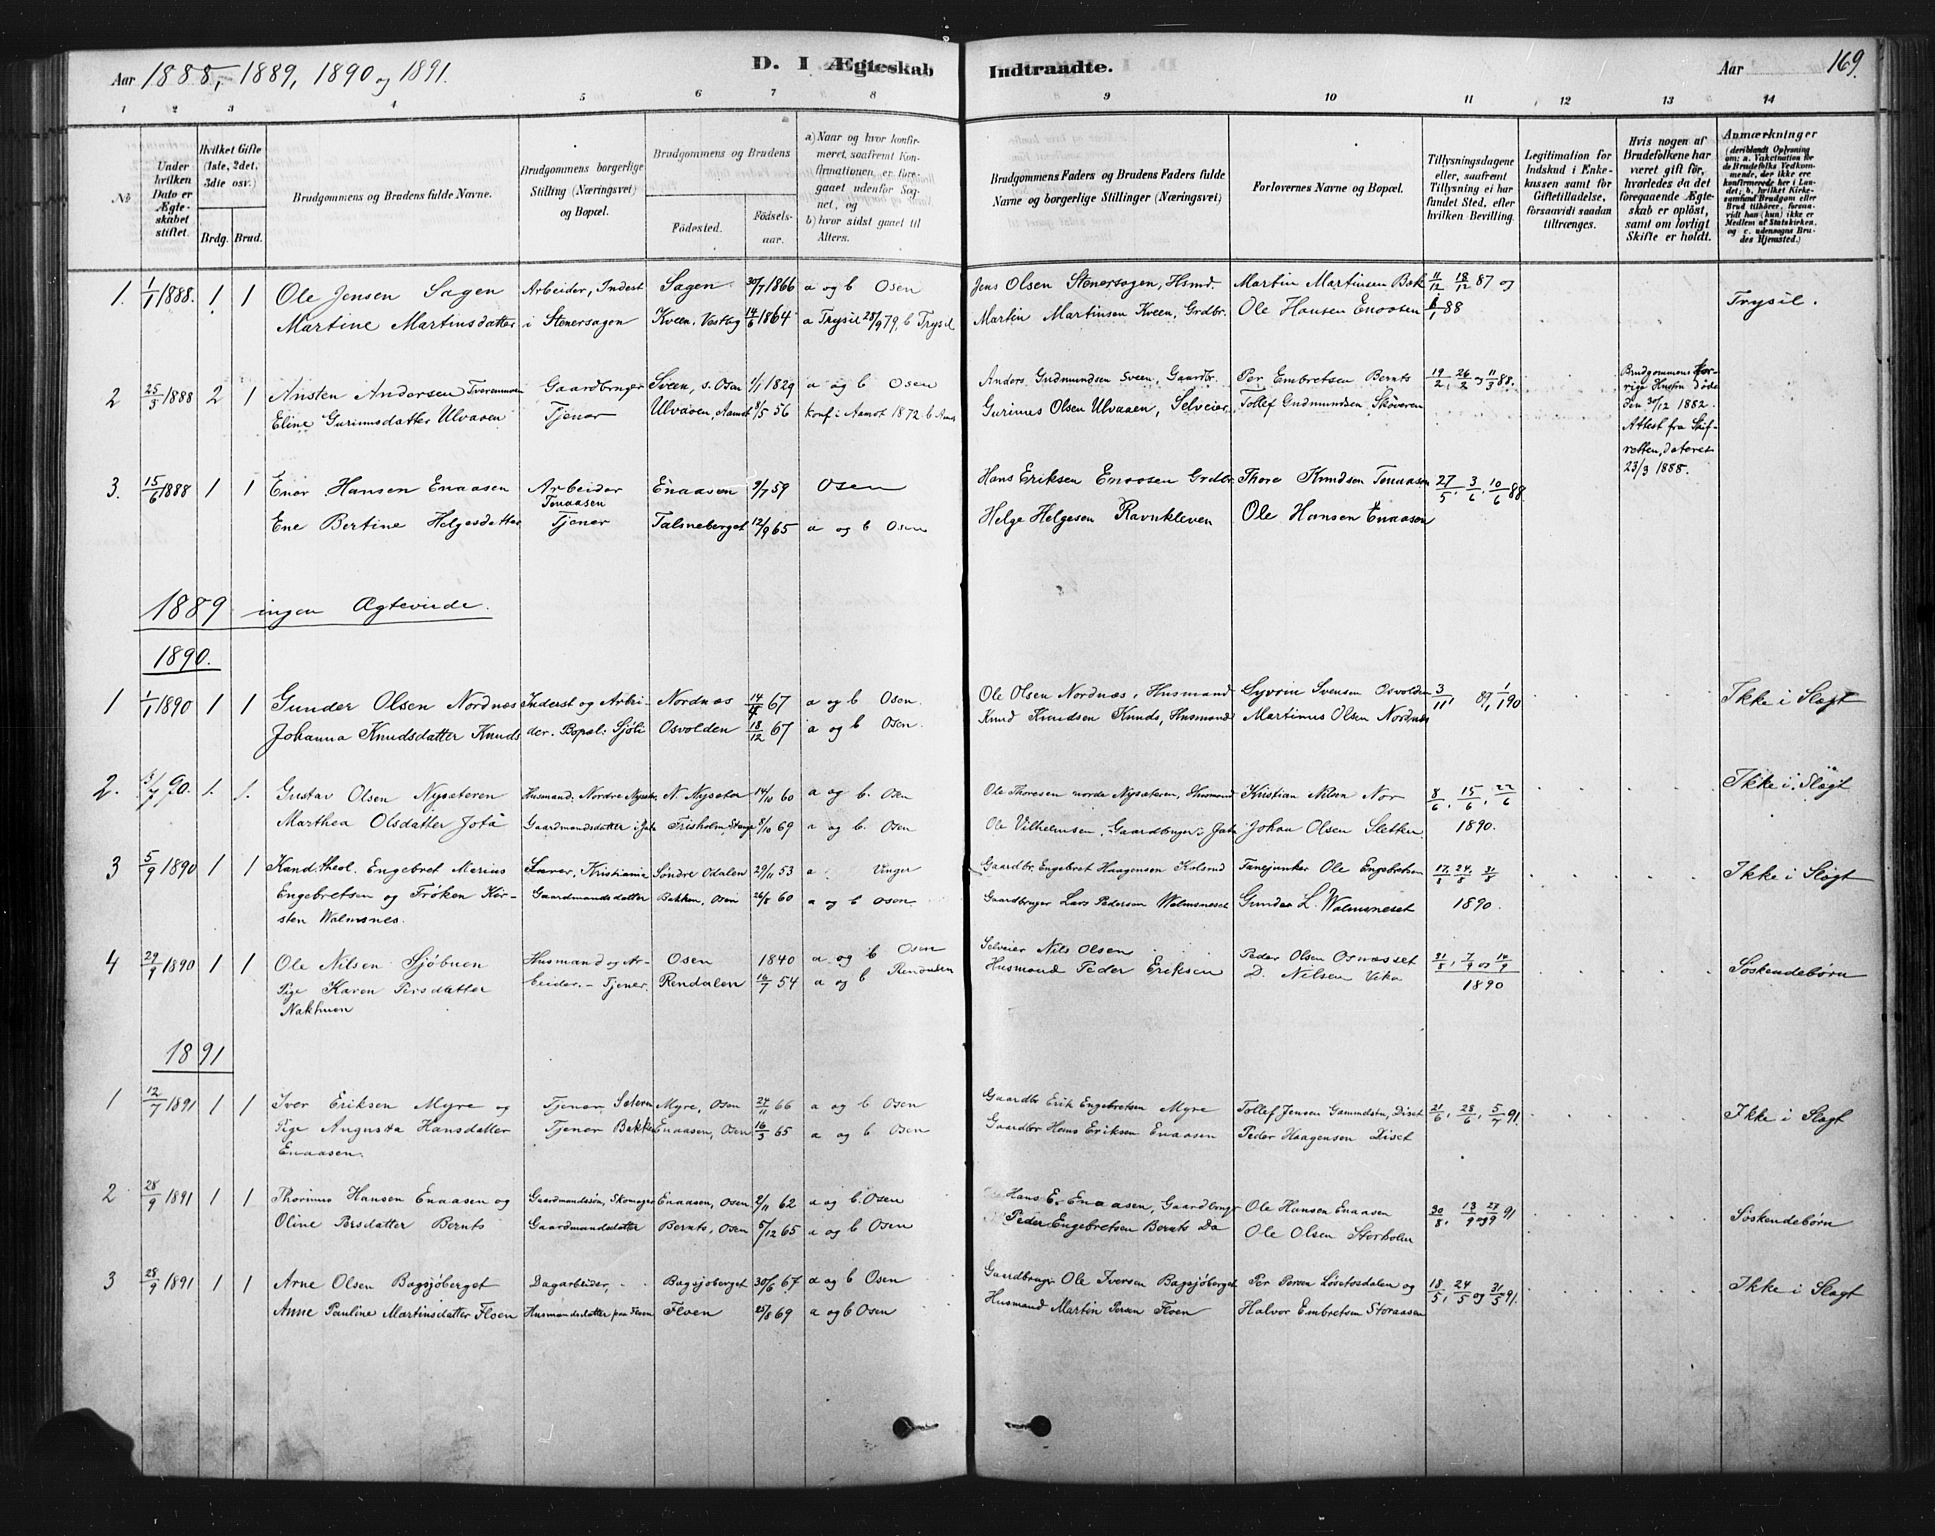 Aar 1888, 1889, 1890 og 1891.
D. I Ægteskab Indtraadte.
Aar 169.
1 2 3 4 5 6 7 8 9 10 11 12 13 14
No
Under hvilken Dato er Ægteskabet stiftet.
Hvilket Gifte (1ste, 2det, 3die osv.)
Brdg. Brud.
Brudgommens og Brudens fulde Navne.
Brudgommens borgerlige Stilling (Næringsvei) og Bopæl.
Brudgommens og Brudens
Fødested.
Fødselsaar.
a) Naar og hvor konfirmeret, saafremt Konfirmationen er foregaaet udenfor Sognet, og
b) hvor sidst gaaet til Alters.
Brudgommens Faders og Brudens Faders fulde Navne og borgerlige Stillinger (Næringsvei)
Forlovernes Navne og Bopæl.
Tillysningsdagene eller, saafremt Tillysning ei har fundet Sted, efter hvilken Bevilling.
Legitimation for Indskud i Enkekassen samt for Giftetilladelse, forsaavidt saadan tiltrænges.
Hvis nogen af Brudefolkene har været gift før, hvorledes da det foregaaende Ægteskab er opløst, samt om lovligt Skifte er holdt.
Anmærkninger (deriblandt Oplysning om: a. Vakcination for de Brudefolks Vedkommende, der ikke ere konfirmerede her i Landet; b. hvilket Kirkesamfund Brudgom eller Brud tilhører, forsaavidt han (hun) ikke er Medlem af Statskirken, og c. udensogns Brudes Hjemsted.)
1. 1/1 1888. 1 1 Ole Jensen Sagen Arbeider, Inderst Sagen 30/7 1866 a og b Osen Jens Olsen Stenersagen, Hsmd. Martin Martinsen Bak 11/12 18/12 87 og Trysil.
Martine Martinsdatter i Stenersagen Kveen, Vestlog 14/6 1864 a Trysil 28/9 79, b Trysil Martin Martinsen Kveen, Grdbr. Ole Hansen Enaasen 1/1 88
2 25/3 1888 2 1 Ansten Andersen Gaardbruger Sveen, s. Osen 1/1 1829 a og b Osen Anders Gudmundsen Sveen, Gaardbr. Per Embretsen Bernts 19/2, 26/2 og 11/3 88. Brudgommens forrige Hustru døde den 30/12 1882. Attest fra Skifretten, dateret 23/3 1888.
Eline Gurinusdatter Ulvaaen Tjener Ulvaaen, Aamot 8/5 56 konf. i Aamot 1872 b Aamot Gurinus Olsen Ulvaaen, Selveier Tollef Gudmundsen, Skøveren
3. 15/6 1888 1 1 Enor Hansen Enaasen Arbeider Enaasen 9/7 59 Osen Hans Eriksen Enaasen Grdbr. Thore Knudsen Tenaasen 27/5, 3/6, 10/6 88.
Ene Bertine Helgesdatter Tenaasen Tjener Talsneberget 12/9 65 a og b Osen Helge Helgesen Ravnkleven Ole Hansen Enaasen
1889 ingen Ægteviede.
1890.
1 1/1 1890 1 1 Gunder Olsen Nordnæs Inderst og Arbei- Nordnæs 14/4 67 a og b Osen. Ole Olsen Nordnæs, Husmand Syvrin Svensen Osvolden Ikke i Slægt
Johanna Knudsdatter Knuds der. Bopæl: Sjøli Osvolden 18/12 67 a og b Osen. Knud Knudsen Knuds, Husmand Martinus Olsen Nordnæs
2. 90. 1. 1. Gustav Olsen Nysæteren Husmand, Nordre Nysæter N. Nysæter 14/10 60 a og b. Osen Ole Thoresen nordre Nysæteren, Husmand Kristian Nilsen Nor 8/6, 15/6, 22/6 Ikke i Slægt
Marthea Olsdatter Jota Gaardmandsdatter i Jota Frisholm, Stange 8/10 69 a og b. Osen Ole Vilhelmsen, Gaardbruger i Jota Johan Olsen Sletten 1890.
3 5/9 1890 1 1 Kand. theol. Engebret Marius Lærer, Kristiania Søndre Odalen 29/11 53 a Vinger Gaardbr. Engebret Haagensen Ole Engebretsen 17/8 24/8 31/8 Ikke i Slægt
Engebretsen og Frøken Kirsten Walmsnes. Gaardmandsdatter Bakken, Osen 26/8 60 a og b Osen Gaardbruger Lars Pedersen Walmsneset Gunder L. Walmsneset 1890.
4 29/9 1890 1 1 Ole Nilsen Sjøbuen Husmand og Ar- Osen 1840 a og b Osen Selveier Nils Olsen Peder Olsen Osnæsset 31/8, 7/9 og 14/9 Søskendebørn
Pige Karen Persdatter beider. - Tjener. Rendalen 16/7 54 a og b Rendalen Husmand Peder Eriksen D. Nilsen Veka 1890
Nakhuen
1891
1 12/7 1891 1 1 Iver Eriksen Myre og Tjener Sætern Myre, Osen 24/11 66 a og b Osen Gaardbr Erik Engebretsen Myre Tollef Jensen Gammelstu, Diset 21/6, 28/6, 5/7 91. Ikke i Slægt
Pige Augusta Hansdatter Tjener Bakken Enaasen, Osen 16/3 65 a og b Osen Gaardbr Hans Eriksen Enaasen Peder Haagensen Diset
Enaasen.
2 28/9 1891 1 1 Thorinus Hansen Enaasen og Gaardmandssøn, Skomager Enaasen, Osen 2/11 62 a og b. Osen Hans E. Enaasen, Gaardbruger Ole Hansen Enaasen 30/8, 13/9 og 27/9 91 Søskendebørn
Oline Persdatter Bernts Gaardmandsdatter Bernts, Osen 5/12 65 a og b Osen Peder Engebretsen Bernts Do Ole Olsen Storholm
3 28/9 1891 1 1 Arne Olsen Bagsjøberget Dagarbeider, Bagsjøberget 30/6 67 a og b Osen Gaardbruger Ole Iversen Bagsjøberget Per Persen Løsetosdalen og 18/5, 24/5 og 31/5 91. Ikke i Slægt
Anne Pauline Martinsdatter Floen Husmandsdatter paa Floen Floen 25/8 69 a og b Osen Husmand Martin Persen Floen Halvor Embretsen Storaasen